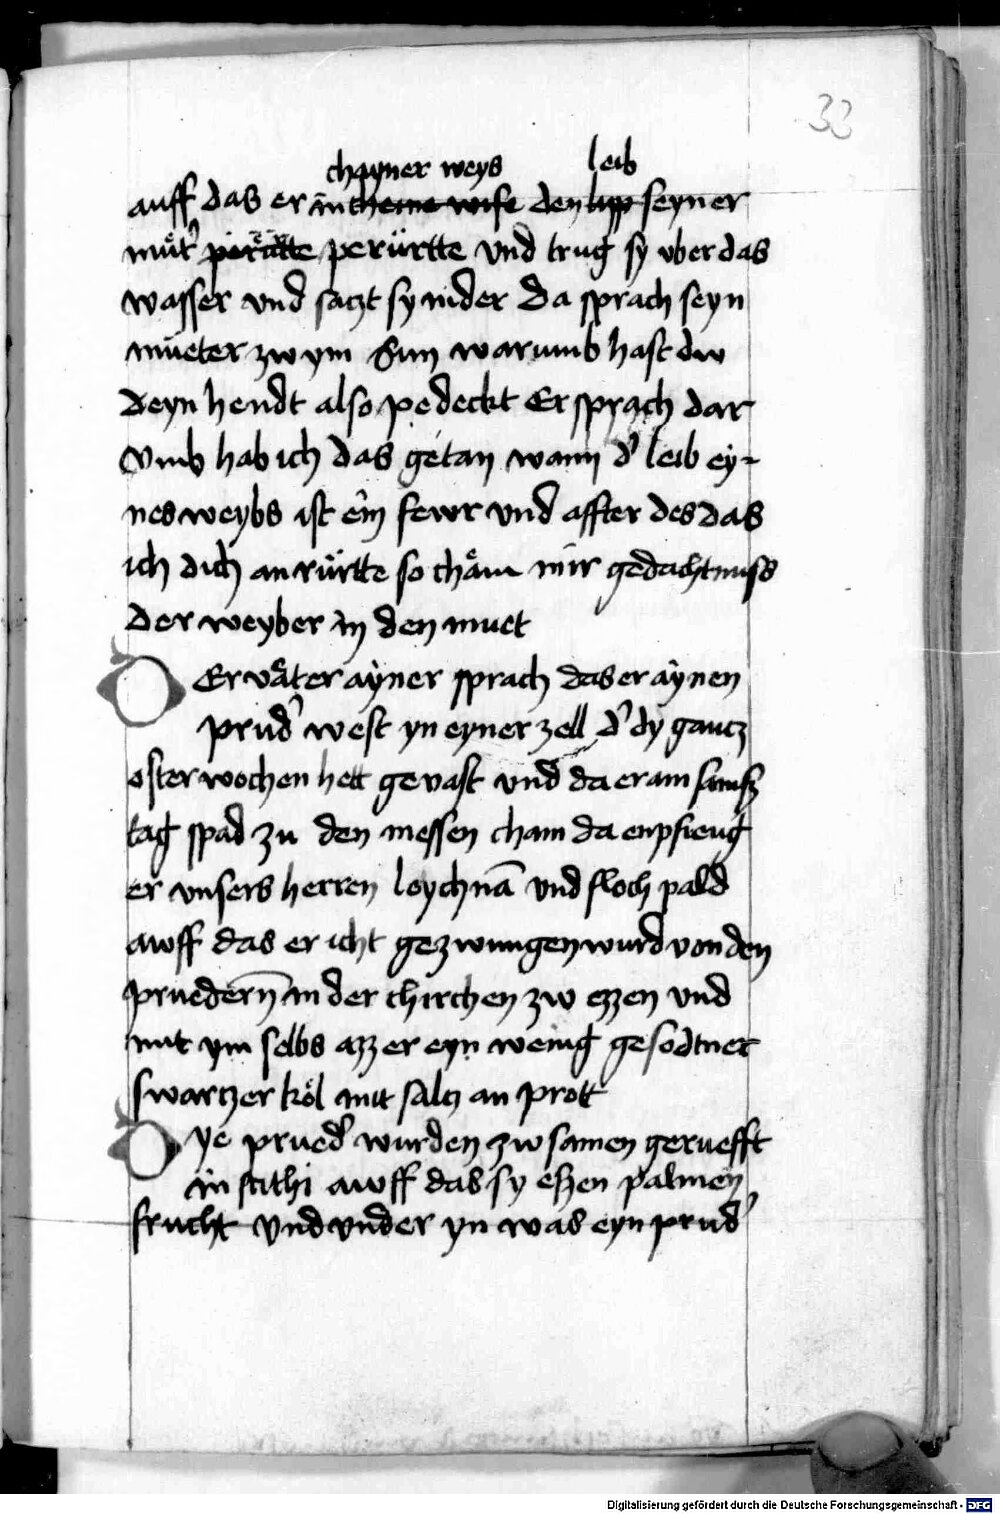 33
chayner weys leib
auff das er in theine wise den lipp seyner
muͦtˀ perurtte perürtte vnd trug sy vber das
wasser vnd saczt sy nider Da sprach seyn
mueter zw ym Sun warumb hast dw
deyn hendt also pedeckt Er sprach dar
vmb hab ich das getan wann dˀ leib ey-
nes weybs ist ein fewr vnd affter des das
ich dich anrürtte so chäm mir gedachtnuss
der weyber in den muet
Er väter ayner sprach das er aynen
prudˀ west yn eyner zell dˀ dy gantz
osterwochen hett gevast vnd da er am samsz
tag spad zu den messen cham da enpfieng
er vnsers herren leychnā vnd floch pald
awff das er icht gezwungen wurd von den
pruedern̄ in der chirchen zw ezzen vnd
mit ym selbs azz er eyn wenig gesodtner
swartzer köl mit saltz an prott
ye pruedˀ wurden zw samen gerüefft
in scithi awff das sy eszen palmen
frucht vnd vnder yn was eyn prudˀ
Digitalisierung gefördert durch die Deutsche Forschungsgemeinschaft - DFG